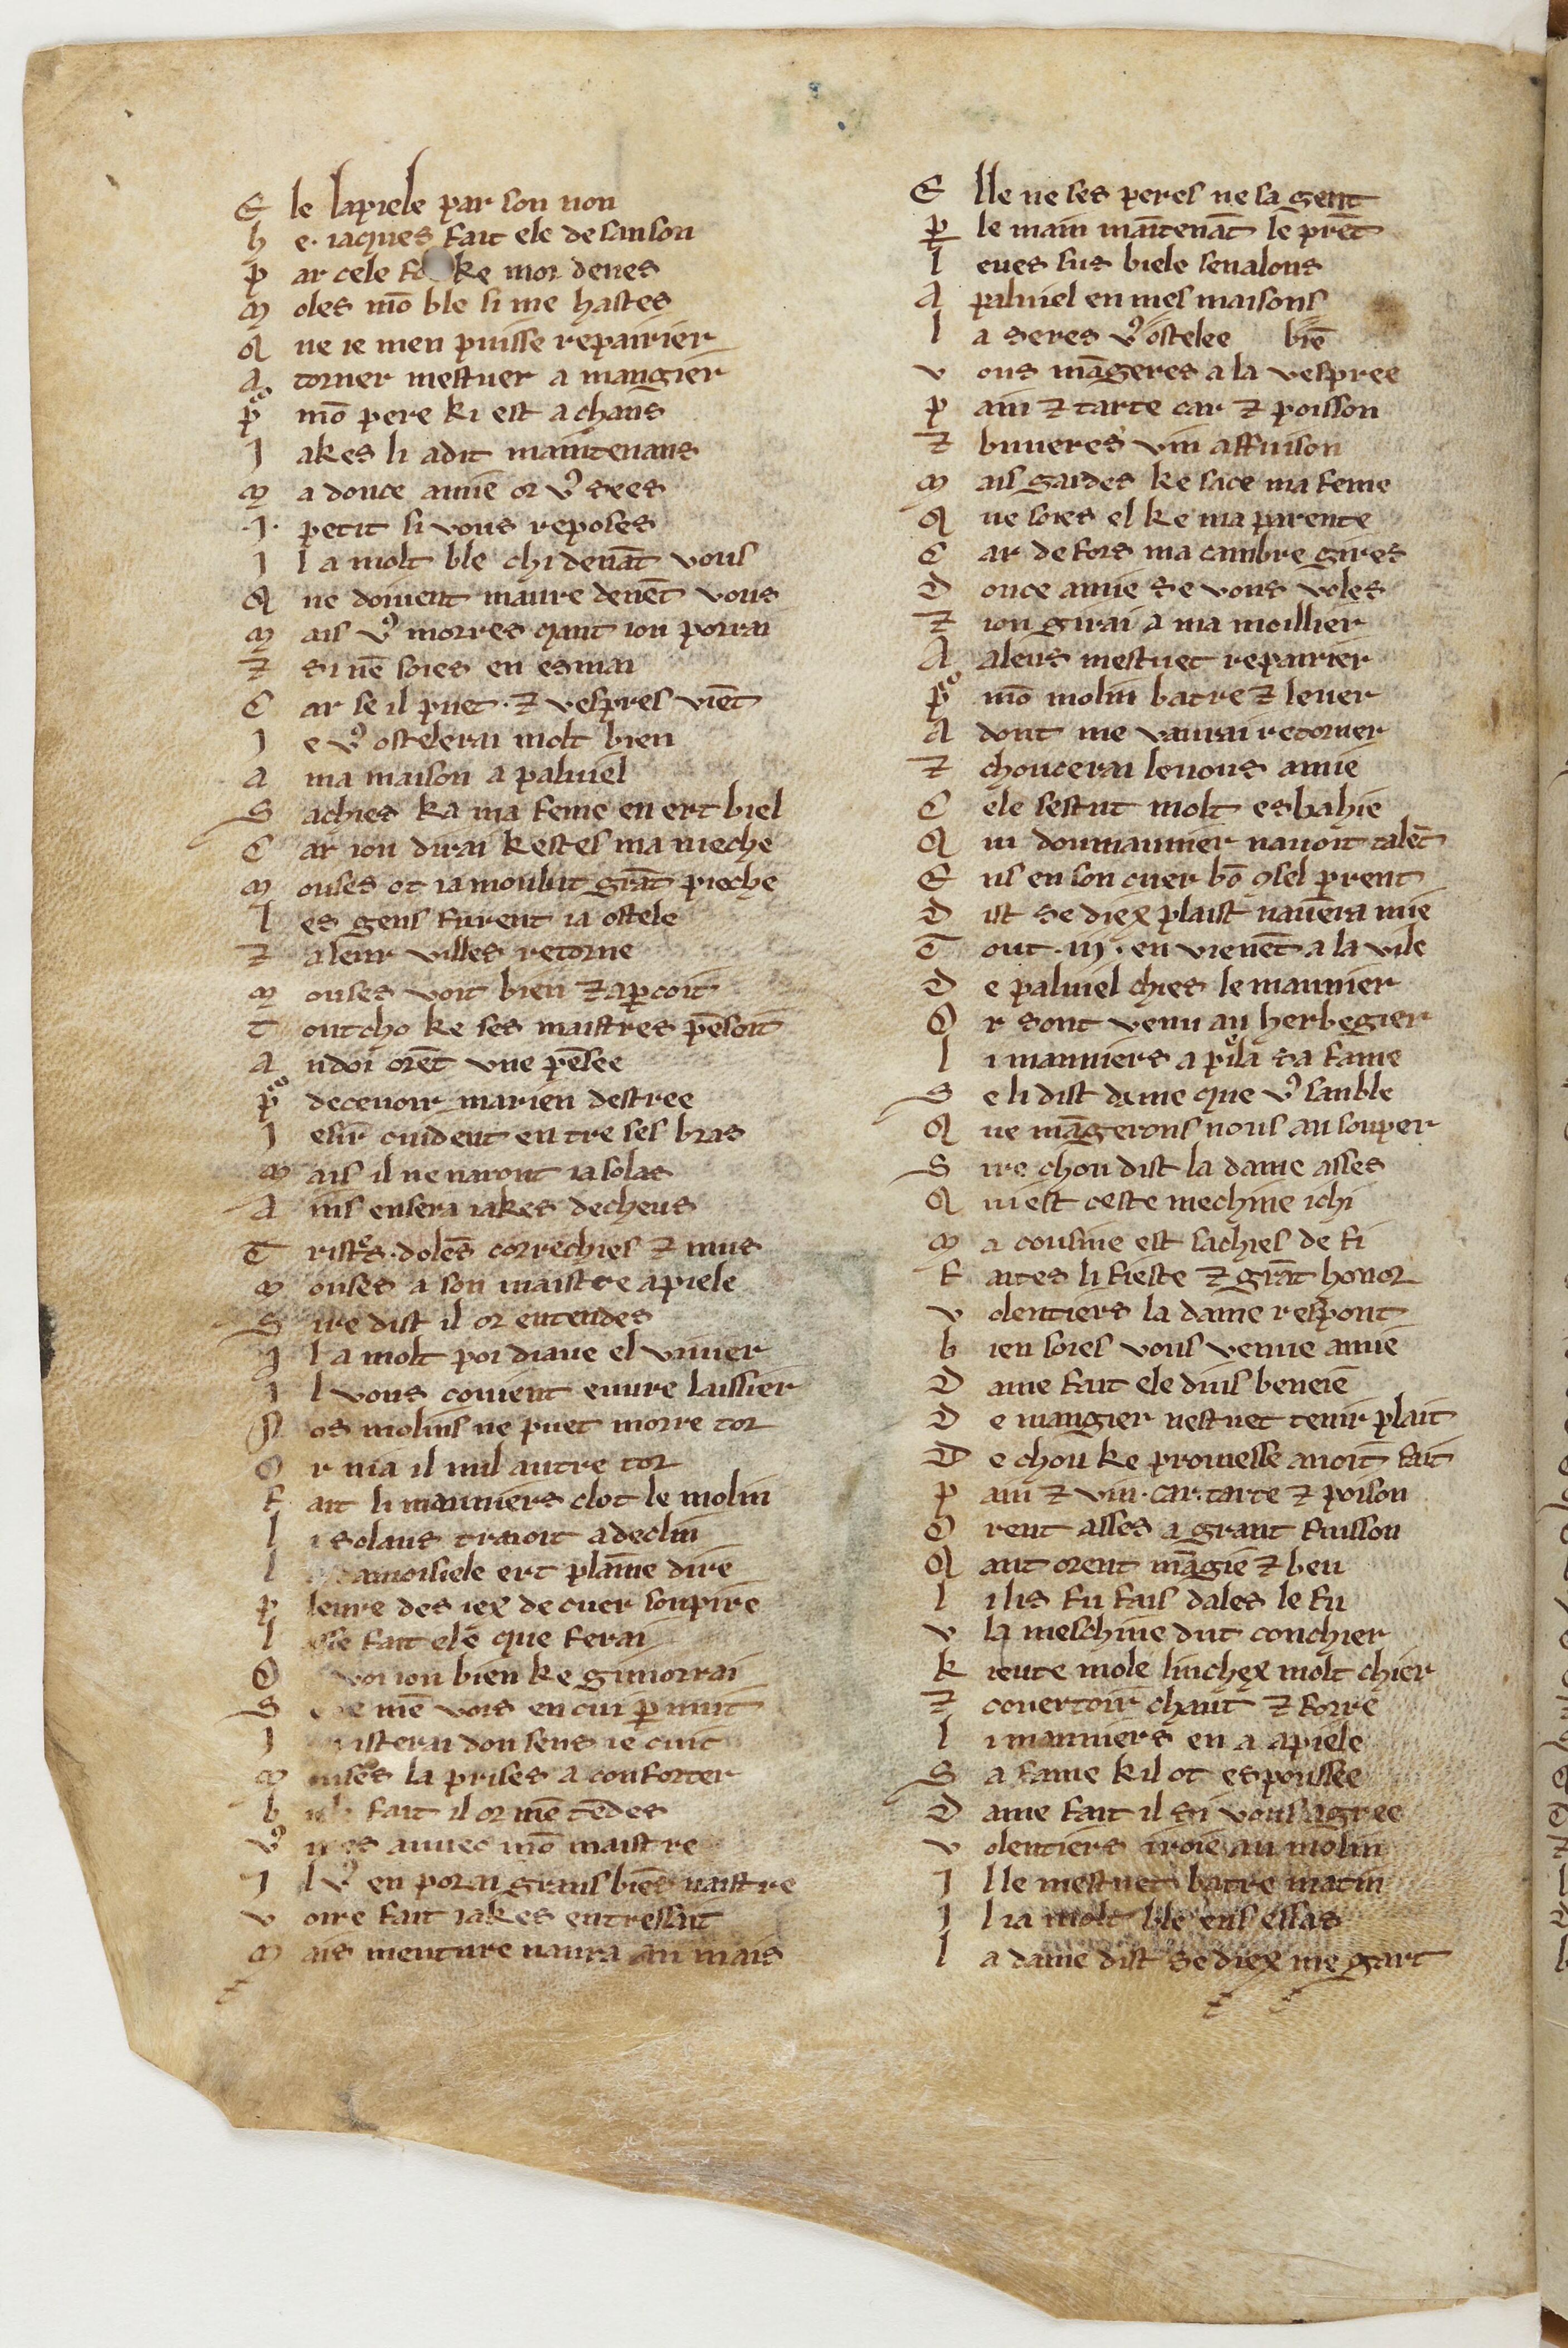 E le lapiele par son non
h e · iaques fait ele de sanson
p ar cele ke moi deues
M oles mō ble si me hastes
Q ue ie men puisse repairier
A torner mestuet a mangier
p̄ mō pere ki est a chans
I akes li a dit maintenans
M a douce amie or vꝰ sees
·I· petit si vous reposes
I l a molt ble chi deuāt vous
Q ue doiuent maure deuēt vous
M ais vꝰ morres qant iou porrai
⁊ si nē soies en esmai
C ar se il puet · ⁊ vespres viēt
I e vꝰ ostelerai molt bien
A ma maison a paluiel
S achies ka ma feme en ert biel
C ar iou dirai kestes ma nieche
M ouses ot ia moulut grāt pieche
L es gens furent ia ostele
⁊ a leur villes retorne
M ouses voit bien ⁊ aꝑcoit
T out cho ke ses maistres pēsoit
A ndoi orēt vne pēsee
p̄ deceuoir marien destree
I esir cuident entre ses bras
M ais il ne naront ia solas
A ins en sera iakes decheus
T ristes · dolēs correchies ⁊ mus
M ouses a son maistre apiele
S ire dist il or entendes
I l a molt poi diaue el viuier
I l vous couient euure laissier
N os molins ne puet morre tor
O r nia il nul autre tor
F ait li mauniers clot le molin
L i solaus traioit a declin
L amoisiele ert plaīne dire
P leure des iex de cuer soupire
L asse fait ele que ferai
O voi iou bien ke gi morrai
S e mē vois encui ꝑ nuit
I isterai dou sens ie cuit
M ouses la prise a conforter
b fait il or mē tēdes
Vꝰ ires auuec mō maistre
I l vꝰ en pora grans biēs naistre
V oire fait iakes entressait
M ais menture naura an mais
E lle ne ses peres ne sa gent
ꝑ le main maītenāt le prēt
L eues sus biele se nalons
A paluiel en mes maisons
L a seres vꝰ ostelee biē
V ous māgeres a la vespree
P ain ⁊ tarte car ⁊ poisson
⁊ buueres vin a ffuison
M ais gardes ke sace ma feme
Q ue soies el ke ma parente
C ar defors ma cambre gires
D ouce amie se vous voles
⁊ iou girai a ma moillier
A aleus mestuet repairier
p̄ mō molin batre ⁊ leuer
A dont me vaurai retorner
⁊ choucerai les vous amie
C ele sestut molt esbahie
Q ui dou maunier nauoit talēt
E us en son cuer bō ꝯsel prent
D ist se diex plaist nauēra mie
T out ·iij· en vienēt a la vile
D e paluiel chies le maunier
O r sont venu au herbegier
L i mauniers a pꝛila sa fame
S e li dist dame que vꝰ sanble
Q ue māgerons nous au souper
S ire chou dist la dame asses
Q ui est ceste mechine ichi
M a cousine est sachies de fi
F aites li fieste ⁊ grāt honor
V olentiers la dame respont
b ien soies vous venue amie
D ame fait ele diuis beneie
D e mangier nestuet tenir plait
D e chou ke promesse auoit fait
P ain ⁊ vin · car · tarte ⁊ poison
O rent asses a grant fuisson
Q ant orent māgie ⁊ beu
L i lis fu fais dales le fu
V la meschine dut couchier
K ieute mole linchex molt chier
⁊ couertoir chaut ⁊ forre
L i mauniers en a apiele
S a fame kil ot espousee
D ame fait il si vous agree
V olentiers iroie au molin
I l le mestuet batre matin
I l ia molt ble ens es sas
L a dame dist se diex me gart